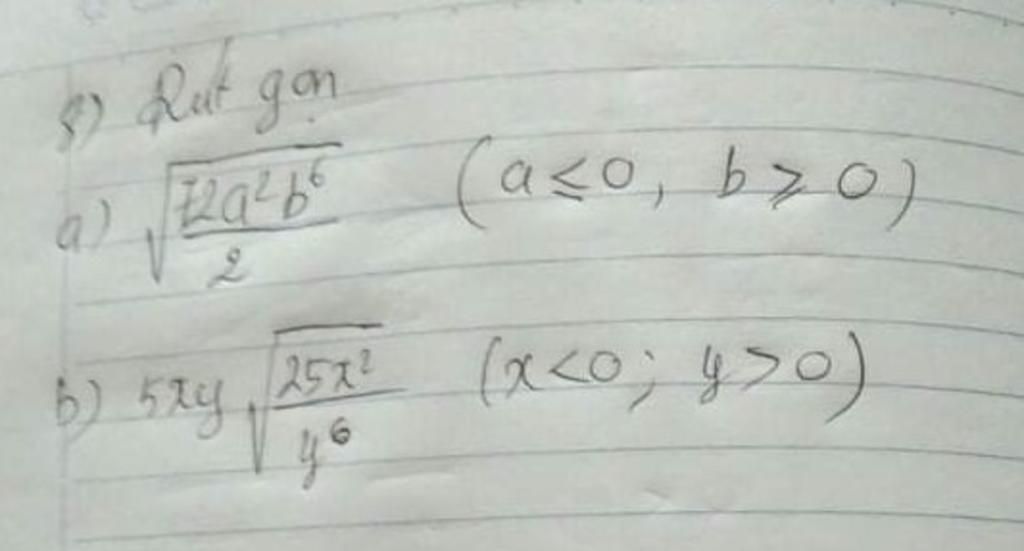 8) Rút gọn
a) √(72a²b⁶/2) (a ≤ 0, b ≥ 0)
b) 5xy √(25x²/y⁶) (x < 0; y > 0)